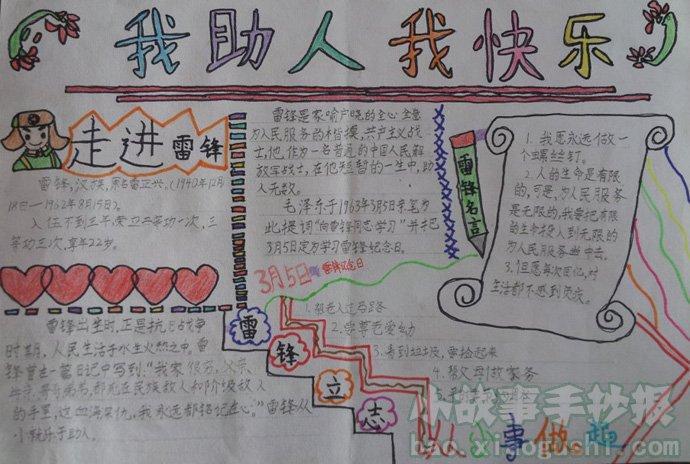 我助人我快乐
走进雷锋
雷锋,汉族,原名雷正兴,(1940年12月
18日—1962年8月15日)。
入伍不到三年,荣立二等功一次,三
等功三次,享年22岁。
雷锋出生时,正是抗日战争
时期,人民生活于水生火热之中。雷
锋曾在一篇日记中写到:"我家很穷,父亲、
都死在民族敌人和阶级敌人
的手里,这血海深仇,我永远都铭记在心。"雷锋从
小就乐于助人。
雷锋是家喻户晓的全心全意
为人民服务的楷模,共产主义战
士,他作为一名普通的中国人民解
放军战士,在他短暂的一生中,助
人无数。
毛泽东于1963年3月5日亲笔为
此提词"向雷锋同志学习"并把
3月5日定为学习雷锋纪念日。
3月5日雷锋纪念日
雷锋立志
1.扶老人过马路
2.尊老爱幼
3.看到垃圾,要捡起来
4.帮父母做家务
雷锋名言
1.我愿永远做一
个螺丝钉。
2.人的生命是有限
的,可是,为人民服务
是无限的,我要把有限
的生命投入到无限的
为人民服务当中去。
3.但愿每次回忆,对
生活都不感到负疚。
从小事做起
小故事手抄报
bao.xiaogushi.com